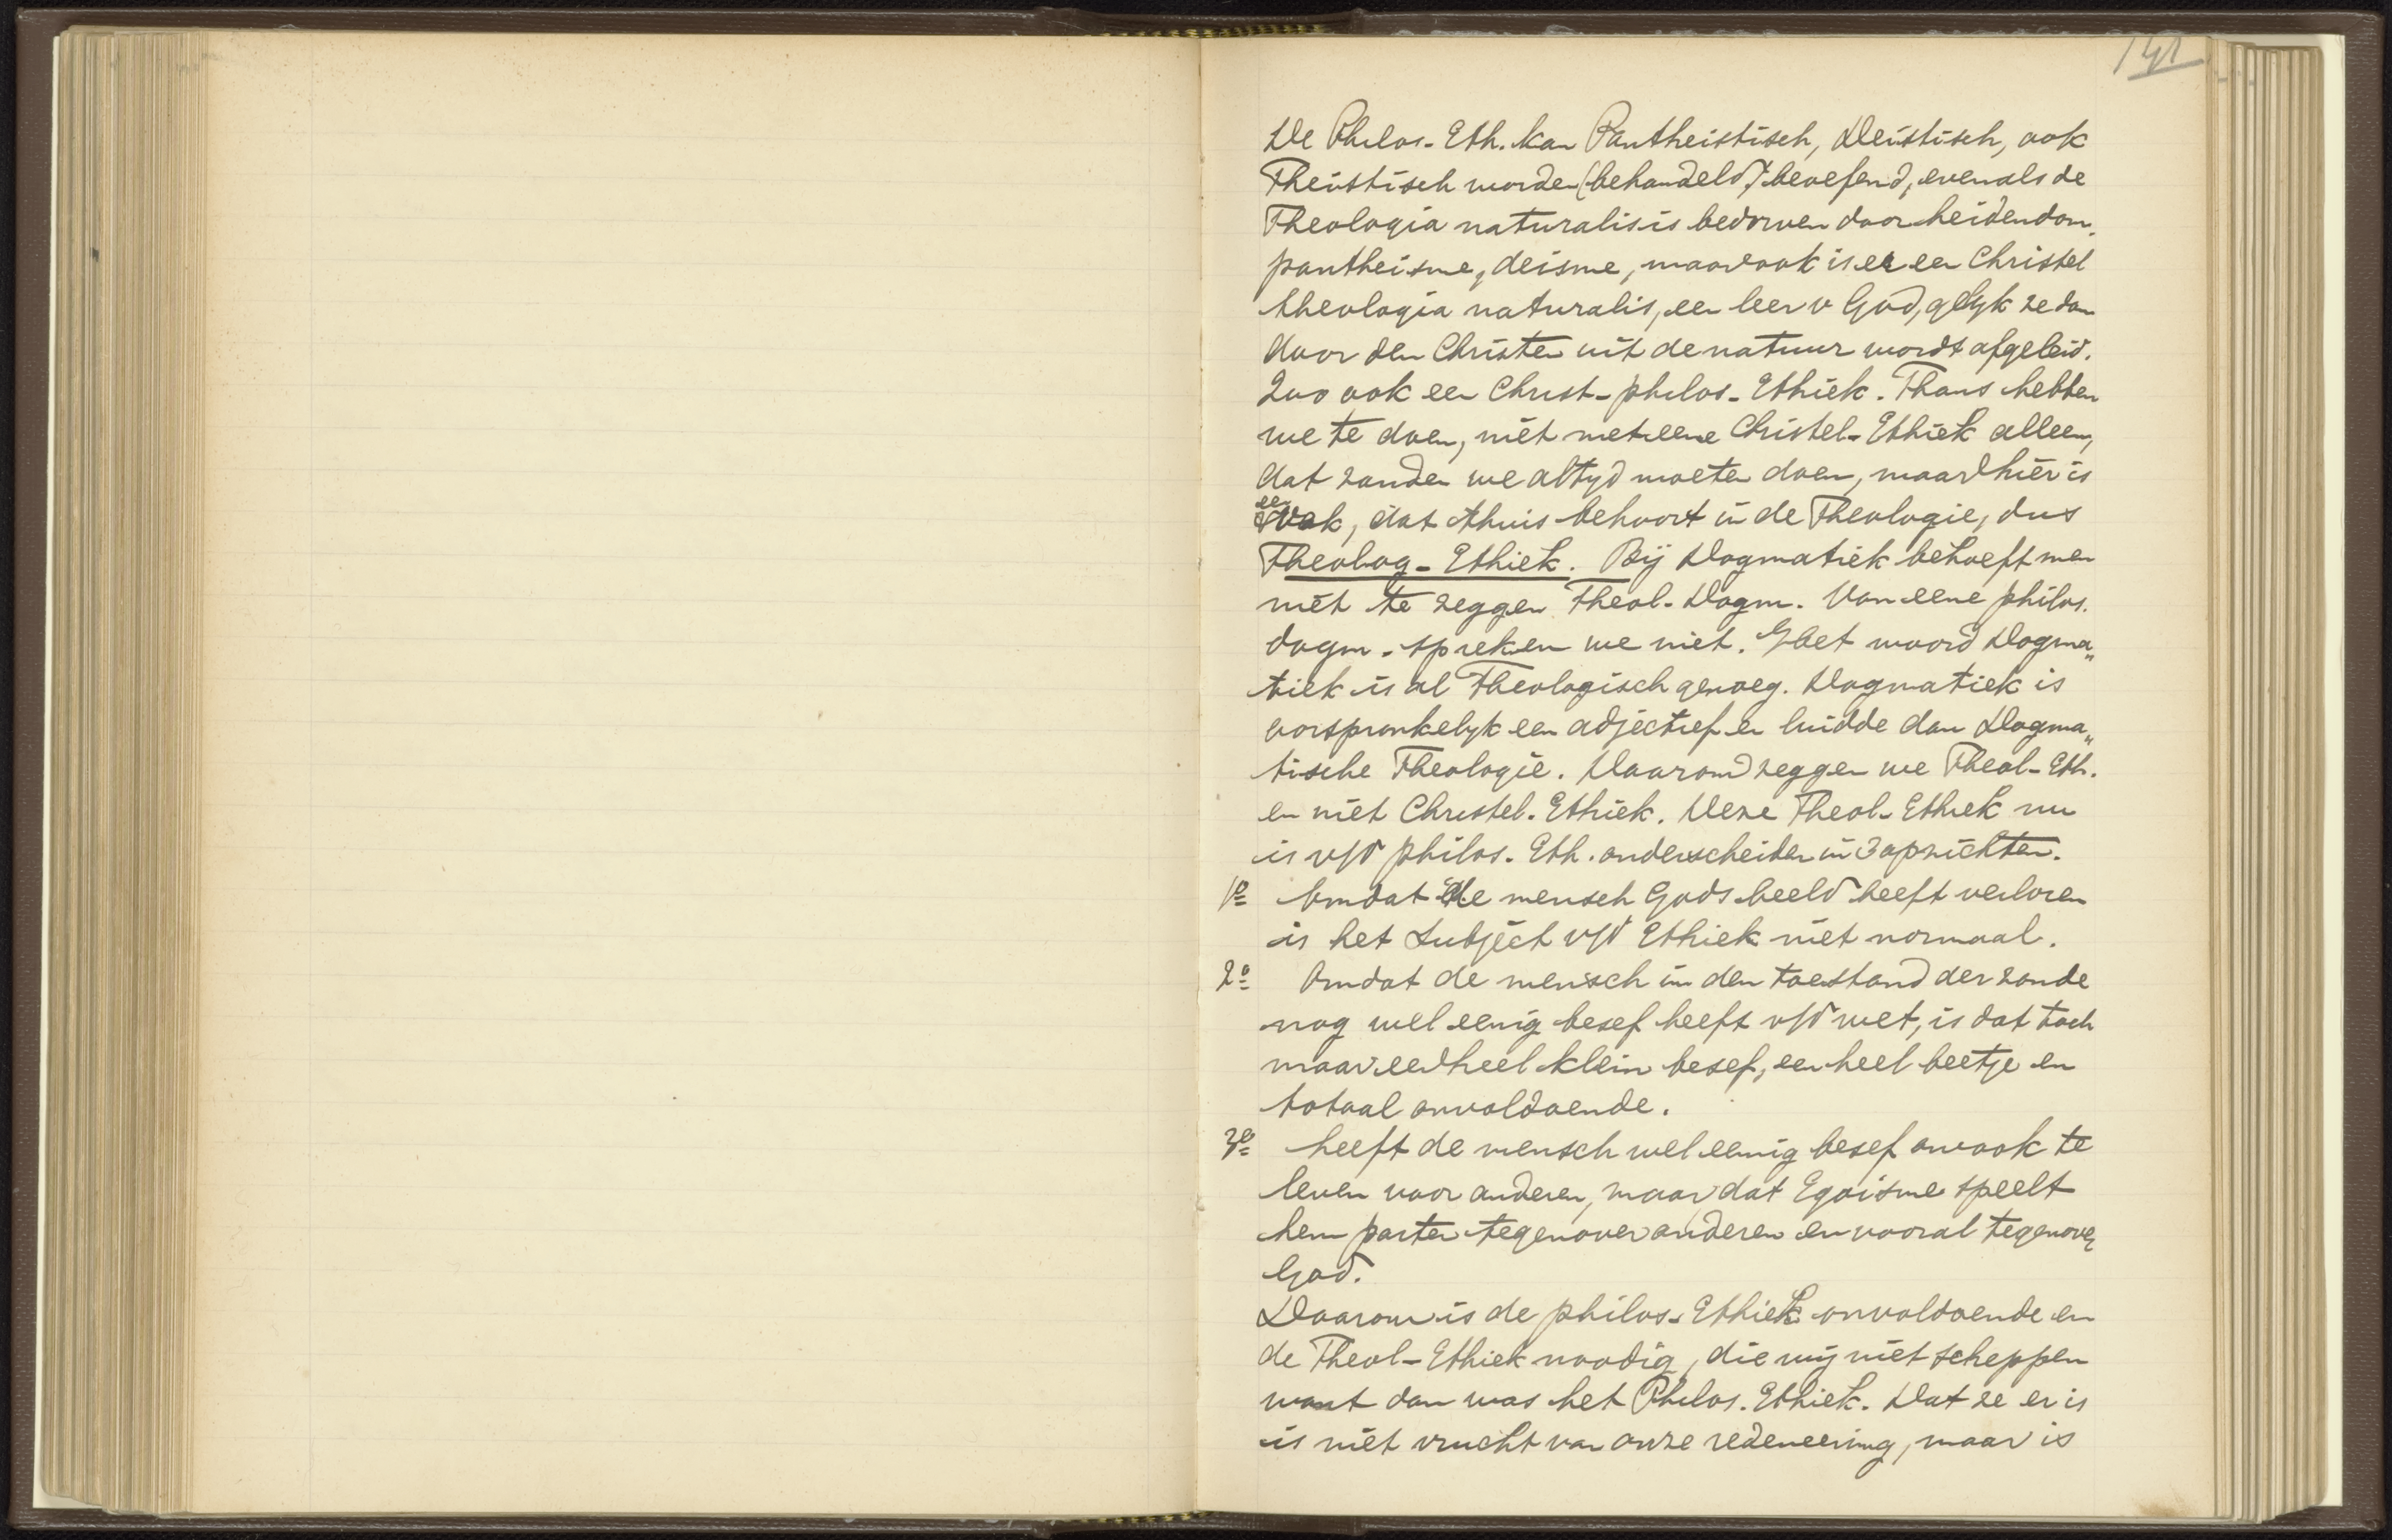 141
De Philos. Eth. kan Pantheistisch, Deistisch, ook
Theistisch worden (behandeld) beoefend, evenals de
Theologia naturalis is bedorven door heidendom,
pantheisme, deisme, maar ook is er een Christel
theologia naturalis, een leer v God, gelyk ze dan
door den Christen uit de natuur wordt afgeleid.
Zoo ook een Christ-philos-Ethiek. Thans hebben
we te doen, niet met eene Christel-Ethiek alleen,
dat zouden we altyd moeten doen, maar hier is
een vak, dat thuis behoort in de Theologie, dus
Theolog-Ethiek. Bij Dogmatiek behoeft men
niet te zeggen Theol-Dogm. Van eene philos.
dogm. spreken we niet. Het woord Dogma„
tiek is al Theologisch genoeg. Dogmatiek is
oorspronkelyk een adjectief en luidde dan Dogma„
tische Theologie. Daarom zeggen we Theol-Eth.
en niet Christel. Ethiek. Deze Theol-Ethiek nu
is v/d philos. Eth. onderscheiden in 3 opzichten.
1o Omdat de mensch Gods beeld heeft verloren
is het Subject v/d Ethiek niet normaal.
2o Omdat de mensch in den toestand der zonde
nog wel eenig besef heeft v/d wet, is dat toch
maar een heel klein besef, een heel beetje en
totaal onvoldoende.
3o heeft de mensch wel eenig besef om ook te
leven voor anderen, maar dat Egoisme speelt
hem parten tegenover anderen en vooral tegenover
God.
Daarom is de philos. Ethiek onvoldoende en
de Theol-Ethiek noodig, die wij niet scheppen
want dan was het Philos. Ethiek. Dat ze er is
is niet vrucht van onze redeneering, maar is